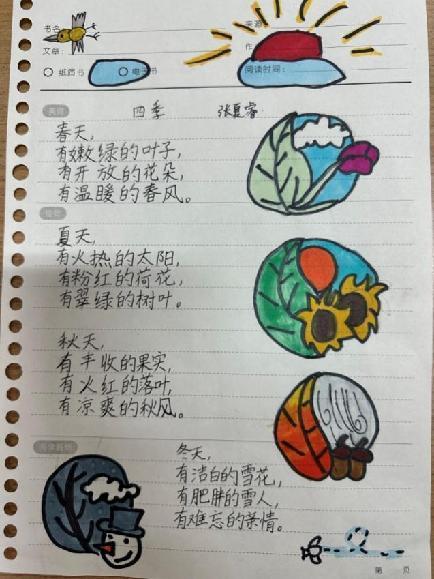 书名:
来源:
文章:
作
纸质书
电子书
阅读时间:
四季
张夏睿
春天,
有嫩绿的叶子,
有开放的花朵,
有温暖的春风。
夏天,
有火热的太阳,
有粉红的荷花,
有翠绿的树叶。
秋天,
有丰收的果实,
有火红的落叶,
有凉爽的秋风。
冬天,
有洁白的雪花,
有肥胖的雪人,
有难忘的亲情。
第 页